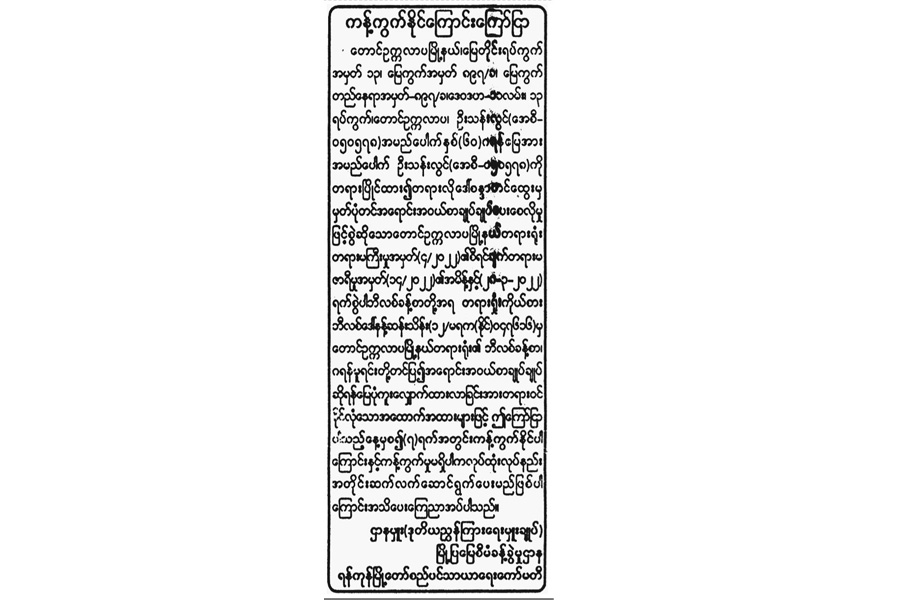 ကန့်ကွက်နိုင်ကြောင်းကြော်ငြာ
တောင်ဥက္ကလာပမြို့နယ်၊မြေတိုင်းရပ်ကွက်
အမှတ် ၁၃၊ မြေကွက်အမှတ် ၈၉၇/ခ၊ မြေကွက်
တည်နေရာအမှတ်-၈၉၇/ခ၊ဒေဝဒဟ လမ်း၊ ၁၃
ရပ်ကွက်၊တောင်ဥက္ကလာပ၊ ဦးသန်းလွင်(အေစီ-
၀၅၀၅၇၈)အမည်ပေါက်နှစ်(၆၀)ဂရန်မြေအား
အမည်ပေါက် ဦးသန်းလွင်(အေစီ-၀၅၀၅၇၈)ကို
တရားပြိုင်ထား၍တရားလိုဒေါ်စန္ဒာတင်ထွေးမှ
မှတ်ပုံတင်အရောင်းအဝယ်စာချုပ်ချုပ်ဆိုပေးစေလိုမှု
ဖြင့်စွဲဆိုသောတောင်ဥက္ကလာပမြို့နယ်တရားရုံး
တရားမကြီးမှုအမှတ်(၄/၂၀၂၂)၏စီရင်ချက်တရားမ
ဇာရီမှုအမှတ်(၁၄/၂၀၂၂)၏အမိန့်နှင့်(၂၈-၃-၂၀၂၂)
ရက်စွဲပါဘီလစ်ခန့်စာတို့အရ တရားရုံးကိုယ်စား
ဘီလစ်ဒေါ်နန့်ဆန်းသိန်း(၁၂/မရက(နိုင်)၀၄၇၆၁၆)မှ
တောင်ဥက္ကလာပမြို့နယ်တရားရုံး၏ ဘီလစ်ခန့်စာ၊
ဂရန်မူရင်းတို့တင်ပြ၍အရောင်းအဝယ်စာချုပ်ချုပ်
ဆိုရန်မြေပုံကူးလျှောက်ထားလာခြင်းအားတရားဝင်
ခိုင်လုံသောအထောက်အထားများဖြင့် ဤကြော်ငြာ
ပါသည့်နေ့မှစ၍(၇)ရက်အတွင်းကန့်ကွက်နိုင်ပါ
ကြောင်းနှင့်ကန့်ကွက်မှုမရှိပါကလုပ်ထုံးလုပ်နည်း
အတိုင်းဆက်လက်ဆောင်ရွက်ပေးမည်ဖြစ်ပါ
ကြောင်းအသိပေးကြေညာအပ်ပါသည်။
ဌာနမှူး(ဒုတိယညွှန်ကြားရေးမှူးချုပ်)
မြို့ပြမြေစီမံခန့်ခွဲမှုဌာန
ရန်ကုန်မြို့တော်စည်ပင်သာယာရေးကော်မတီ